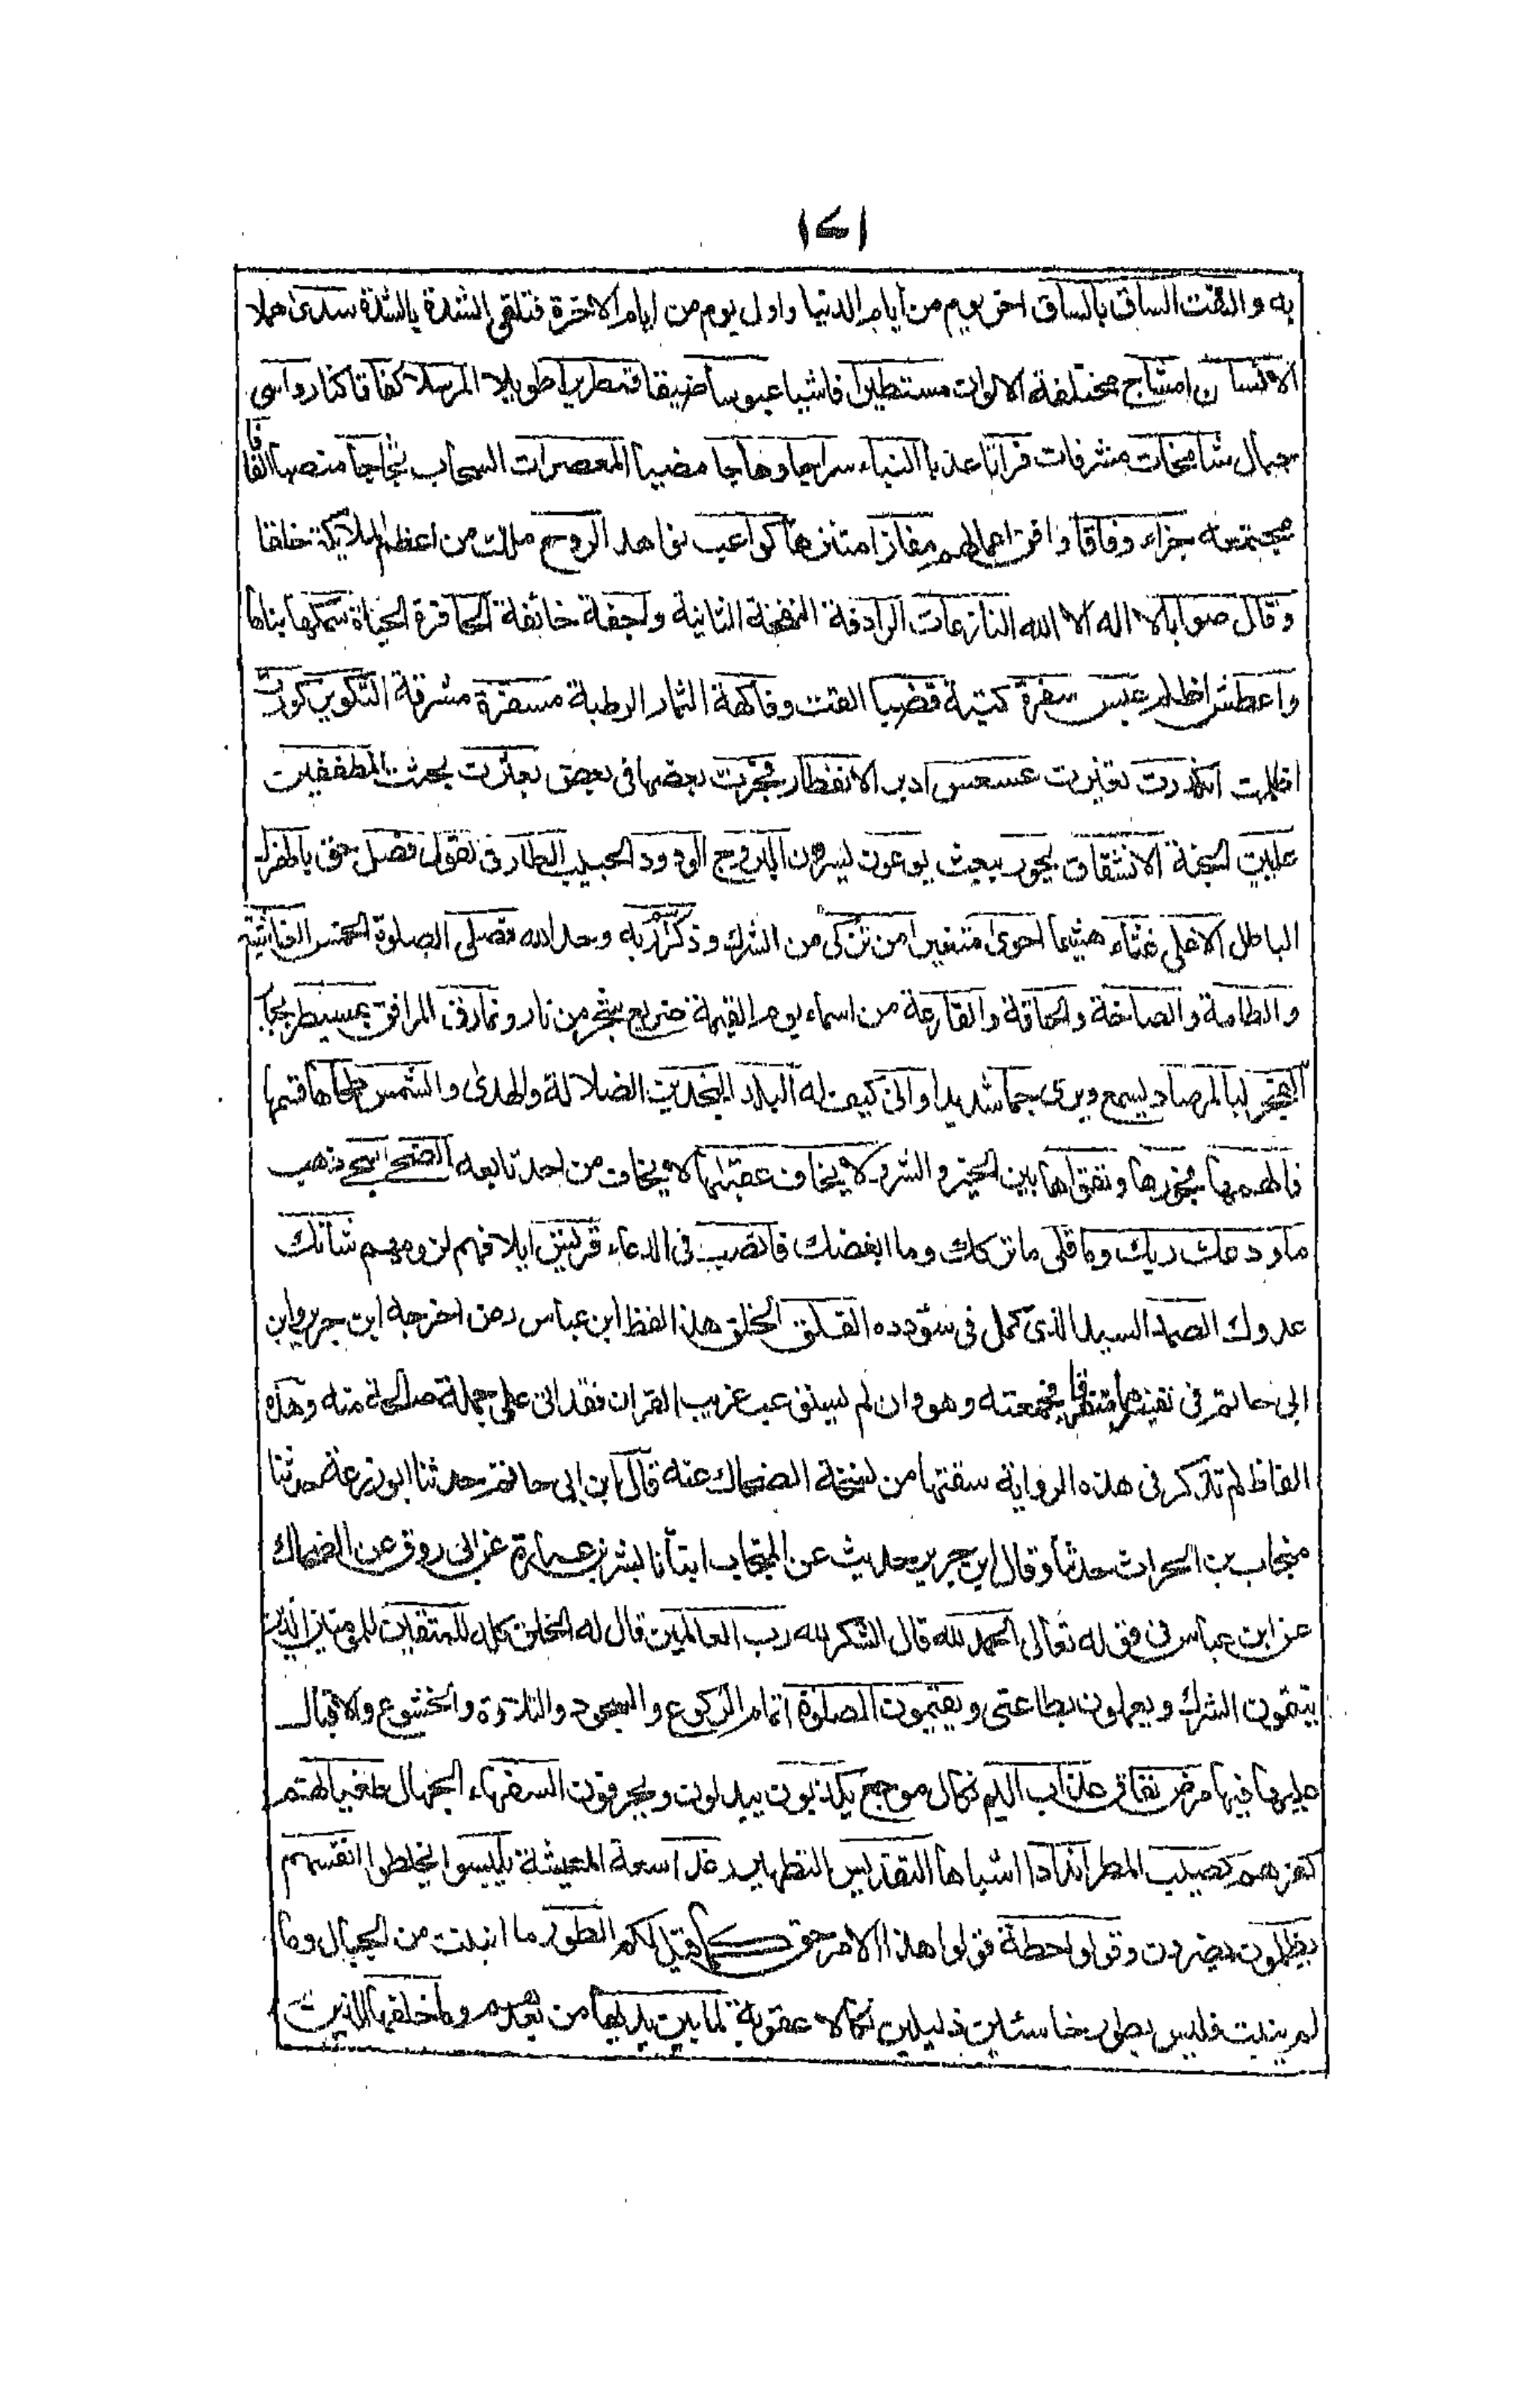 ١٤١
به والتفت الساق بالساق اخر يوم من ايام الدنيا واول يوم من ايام الاخرة فتلقى الشدة بالشدة سدى هملا
الانسان امشاج مختلفة الالوان مستطيرا فاشيا عبوسا ضيقا قمطريرا طويلا المرسلات كفاتا كنا رواسى
جبال شامخات مشرفات فراتا عذبا النباء سراجا وهاجا مضيا المعصرات السحاب ثجاجا منصبا الفافا
مجتمعه جزاء وفاقا وافق اعمالهم مفازا متنزها كواعب نواهد الروح ملك من اعظم الملائكة خلقا
وقال صوابا لا اله الا الله النازعات الرادفة النفخة الثانية واجفة خائفة الحافرة الحياة سمكها بناها
واغطش اظلم عبس سفرة كتبة قضبا القت وفاكهة الثمار الرطبة مسفرة مشرقة التكوير كورت
اظلمت انكدرت تغيرت عسعس ادبر الانفطار فجرت بعضها فى بعض بعثرت بحثت المطففين
عليين الجنة الانشقاق يحور يبعث يوعون يسرون البروج الودود الحبيب الطارق لقول فصل حق بالهزل
الباطل الاعلى غثاء هشيما احوى متغيرا من تزكى من الشرك وذكر اسم ربه وحد الله فصلى الصلوة الخمس الغاشية
والطامة والصاخة والحاقة والقارعة من اسماء يوم القيمة ضريع شجر من نار ونمارق المرافق بمسيطر بجبار
الفجر لبالمرصاد يسمع ويرى جما شديدا وانى كيف له البلد النجدين الضلالة والهدى والشمس طحاها قسمها
فالهمها فجورها وتقواها بين الخير والشر ولا يخاف عقبها لا يخاف من احد تابعه الضحى سجى ذهب
ما ودعك ربك وما قلى ما تركك وما ابغضك فانصب فى الدعاء قريش ايلافهم لزومهم شانئك
عدوك الصمد السيد الذى كمل فى سؤدده الفلق الخلق هذا لفظ ابن عباس رض اخرجه ابن جرير وابن
ابى حاتم فى تفسيرهما متفرقا فجمعته وهو وان لم يستوعب غريب القران فقد اتى على جملة صالحة منه وهذه
الفاظ لم تذكر فى هذه الرواية سقتها من نسخة الضحاك عنه قال ابن ابى حاتم حدثنا ابو زرعة حدثنا
منجاب بن الحرث حدثنا وقال ابن جرير حديث عن المنجاب انبأنا بشر بن عمارة عن ابى روق عن الضحاك
عن ابن عباس فى قوله تعالى الحمد لله قال الشكر لله رب العالمين قال له الخلق كله للمتقين للمومنين الذين
يتقون الشرك ويعملون بطاعتى ويقيمون الصلوة اتمام الركوع والسجود والتلاوة والخشوع والاقبال
عليها فيها مرض نفاق عذاب اليم نكال موجع يكذبون يبدلون ويحرفون السفهاء الجهال طغيانهم
كفرهم كصيب المطر اندادا اشباها التقديس التطهير رغدا سعة المعيشة يلبسوا يخلطوا انفسهم
يظلمون يضرون وقولوا حطة قولوا هذا الامر حق كما قيل لكم الطور ما انبت من الجبال وما
لم ينبت فليس بطور خاسئين ذليلين نكالا عقوبة لما بين يديها من بعدهم وما خلفها الذين